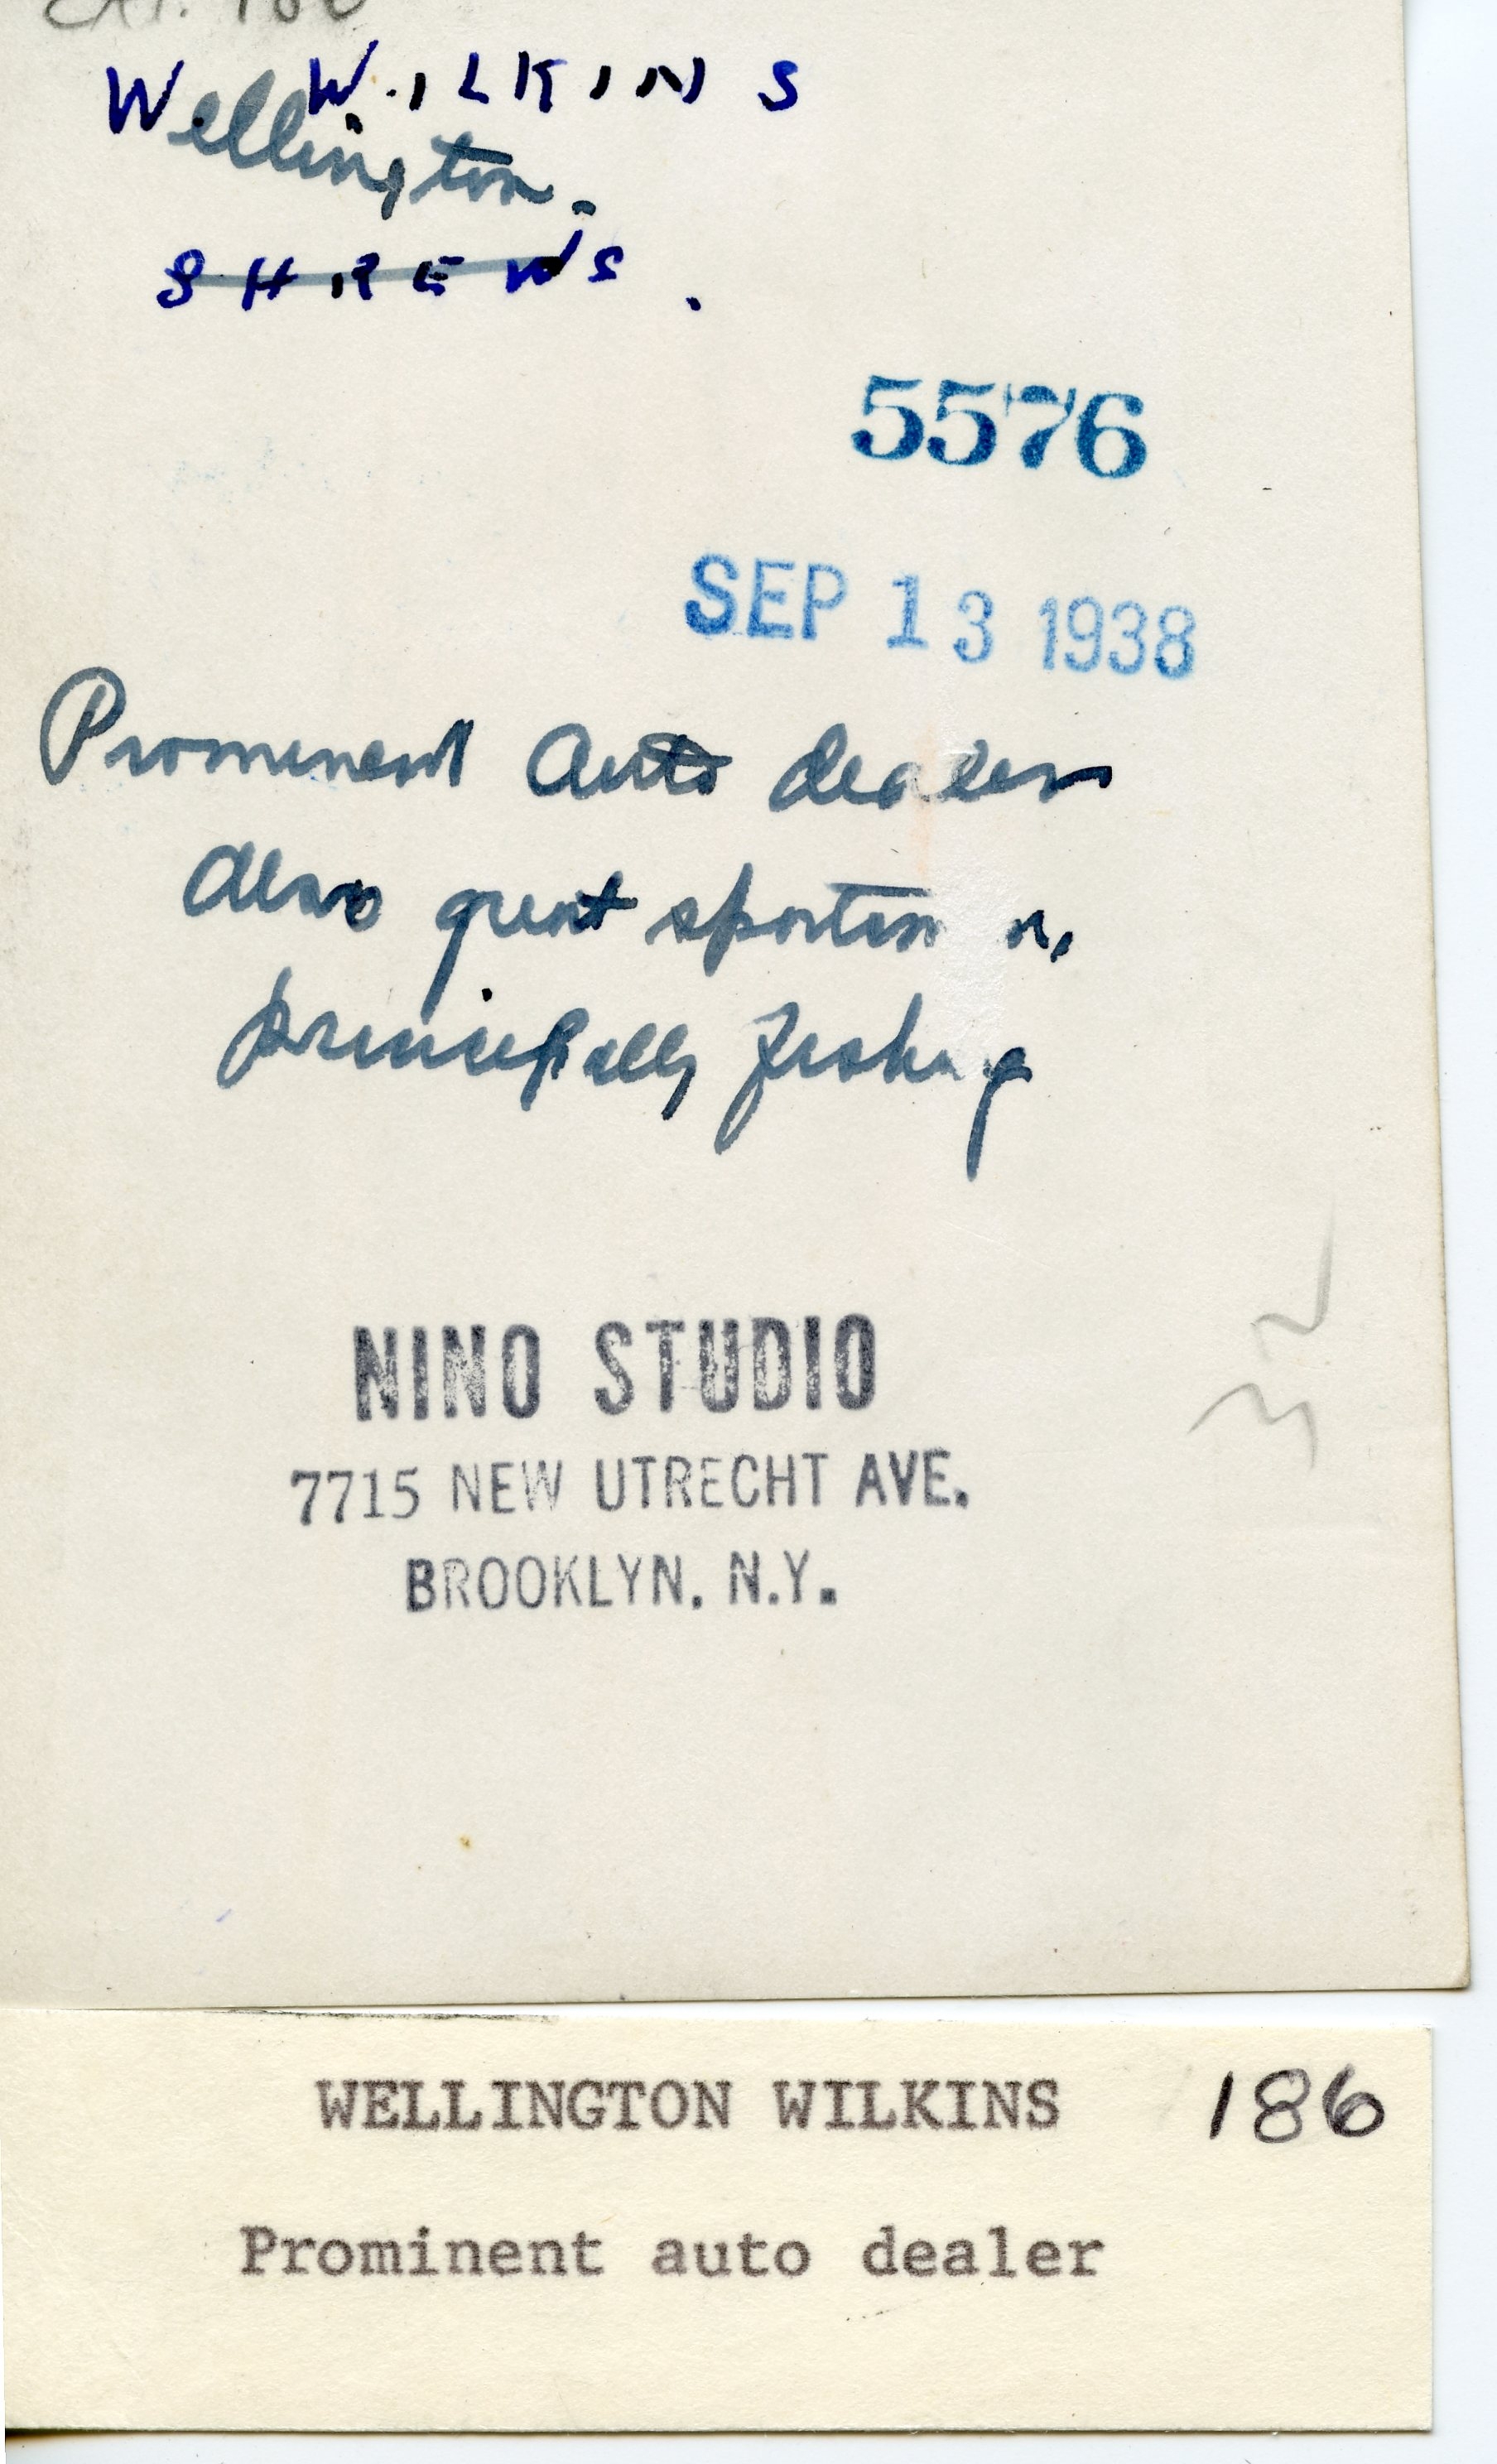 W. WILKINS
Wellington.
SHREWS.
5576
SEP 13 1938
Prominent Auto dealer
Also great sportsman,
principally fishing
NINO STUDIO
7715 NEW UTRECHT AVE.
BROOKLYN. N.Y.
WELLINGTON WILKINS 186
Prominent auto dealer